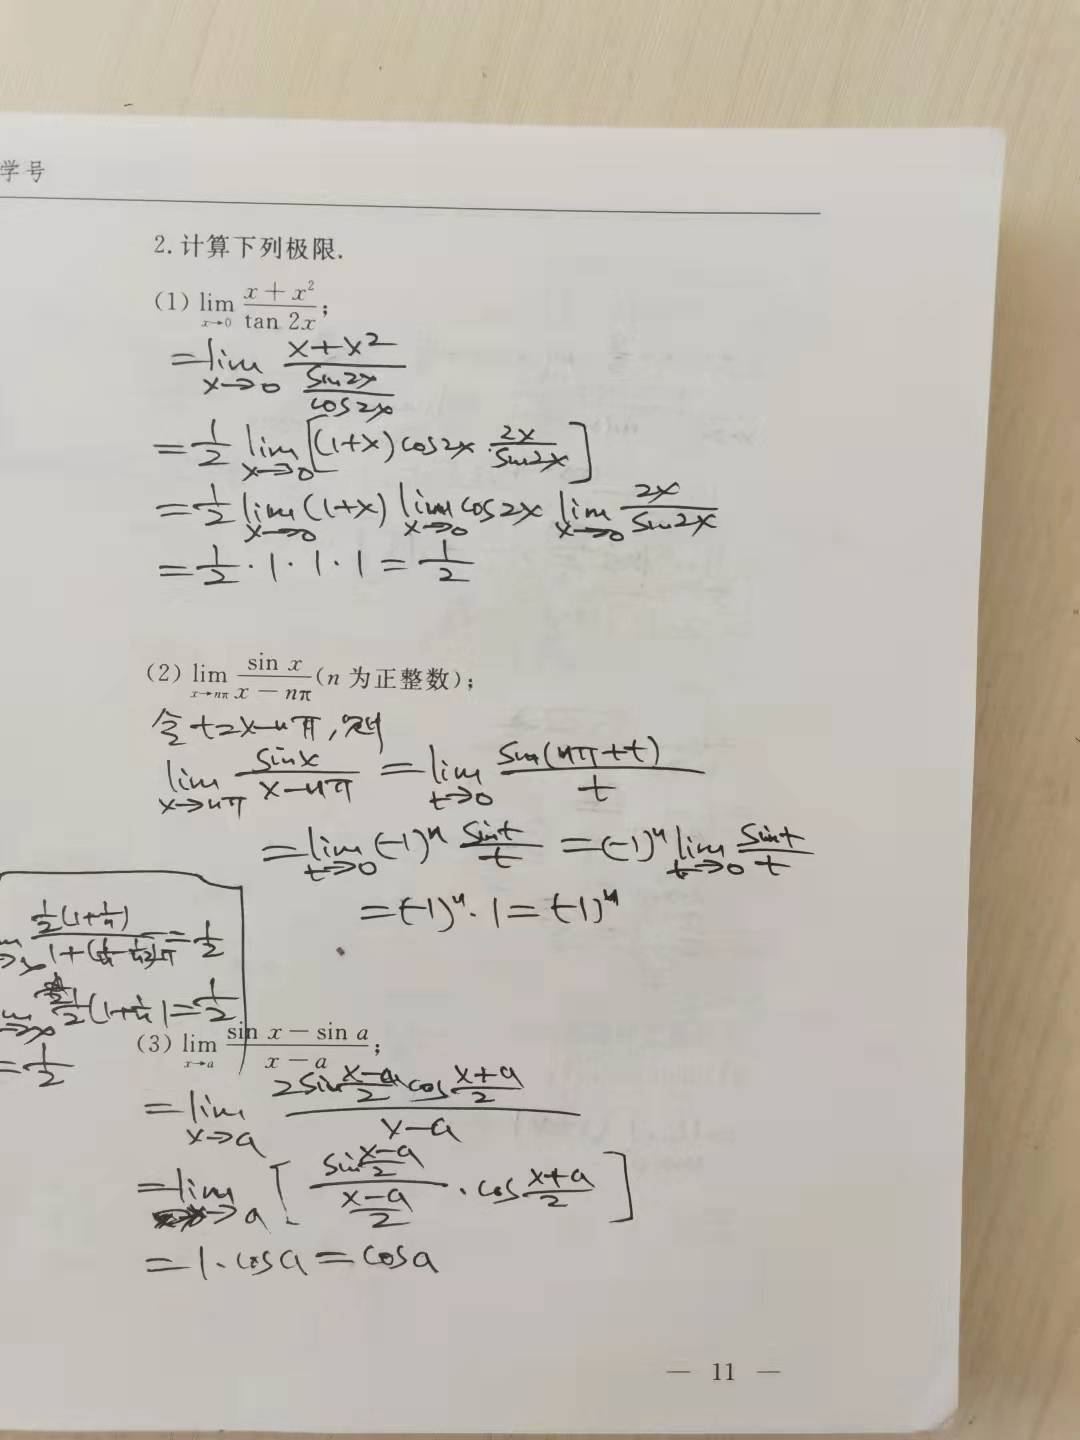 学号
2.计算下列极限.
(1) lim x→0 (x+x²)/(tan 2x);
=lim x→0 (x+x²)/((sin2x)/(cos2x))
=1/2 lim x→0 [(1+x)cos2x·(2x)/(sin2x)]
=1/2 lim x→0 (1+x) lim x→0 cos2x lim x→0 (2x)/(sin2x)
=1/2·1·1·1=1/2
(2) lim x→nπ (sin x)/(x−nπ)(n 为正整数);
令t=x-nπ,则
lim x→nπ (sinx)/(x-nπ)=lim t→0 (sin(nπ+t))/t
=lim t→0 (-1)ⁿ (sint)/t=(-1)ⁿ lim t→0 (sint)/t
=(-1)ⁿ·1=(-1)ⁿ
=1/2
1/2(1+1/n)=1/2
=1/2
(3) lim x→a (sin x−sin a)/(x−a);
=lim x→a (2sin((x-a)/2)cos((x+a)/2))/(x-a)
=lim x→a [(sin((x-a)/2))/((x-a)/2)·cos((x+a)/2)]
=1·cosa=cosa
— 11 —